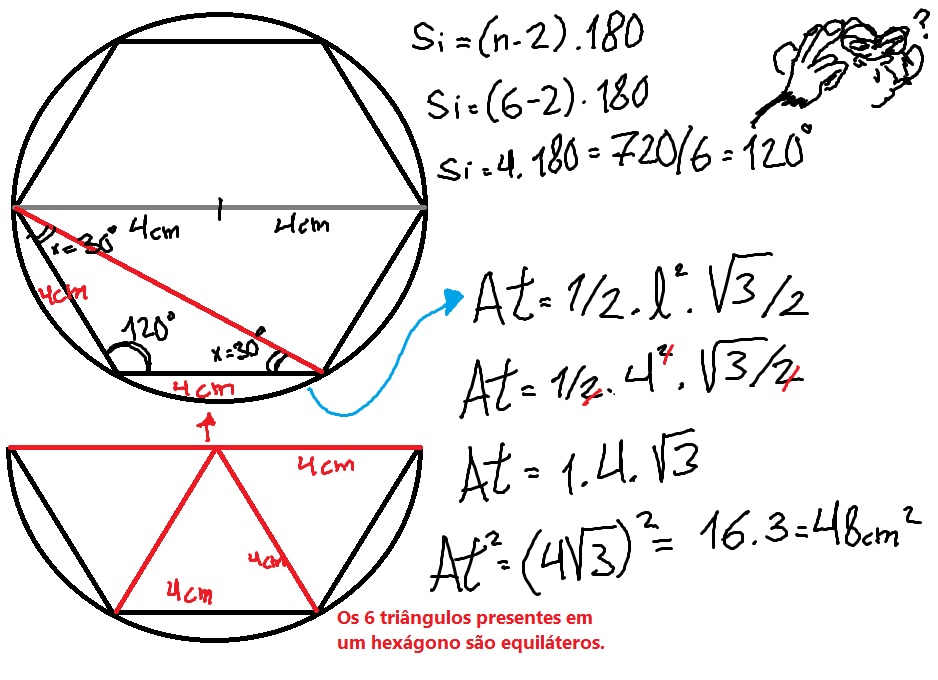 Si = (n-2) . 180
?
Si = (6-2) . 180
Si = 4 . 180 = 720/6 = 120°
4cm
4cm
x=30°
4cm
120°
x=30°
4cm
At = 1/2 . l² . √3/2
At = 1/2 . 4² . √3/2
At = 1 . 4 . √3
At² = (4√3)² = 16 . 3 = 48cm²
4cm
4cm
4cm
Os 6 triângulos presentes em
um hexágono são equiláteros.